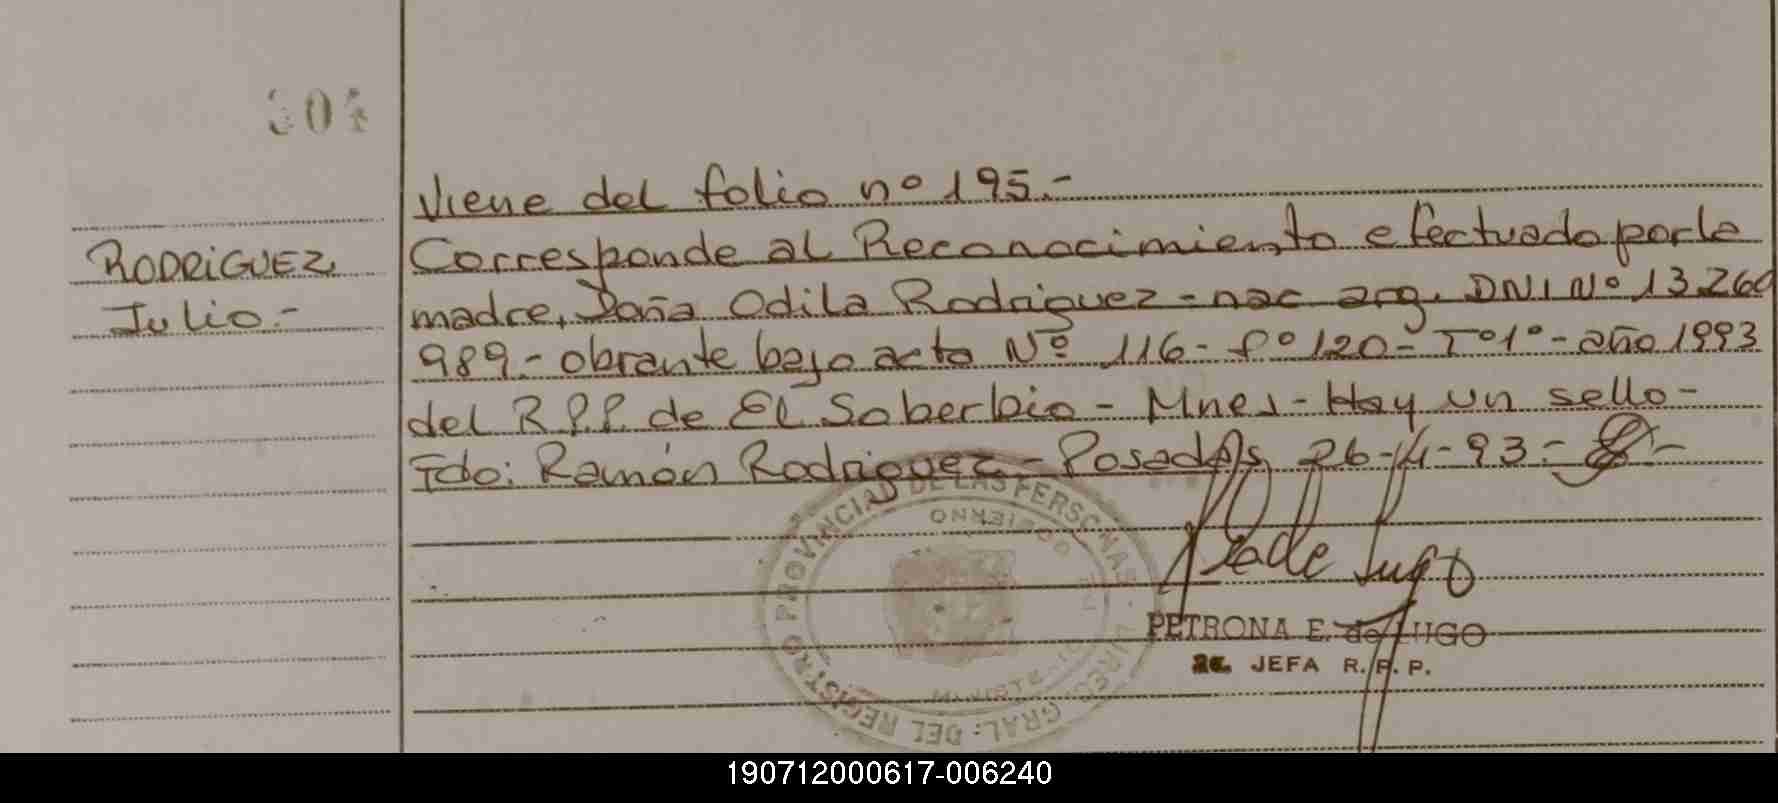 304
RODRIGUEZ
Julio.-
Viene del folio nº 195.-
Corresponde al Reconocimiento efectuado por la
madre, Doña Odila Rodriguez - nac arg. DNI Nº 13.260
989.- obrante bajo acta Nº 116 - Fº 120 - Tº 1º - año 1993
del R.P.P. de El Soberbio - Mnes - Hay un sello -
Fdo: Ramón Rodriguez - Posadas, 26-4-93.-
GRAL. DEL REGISTRO PROVINCIAL DE LAS PERSONAS
MINISTERIO DE GOBIERNO
PETRONA E. de LUGO
JEFA R.P.P.
190712000617-006240